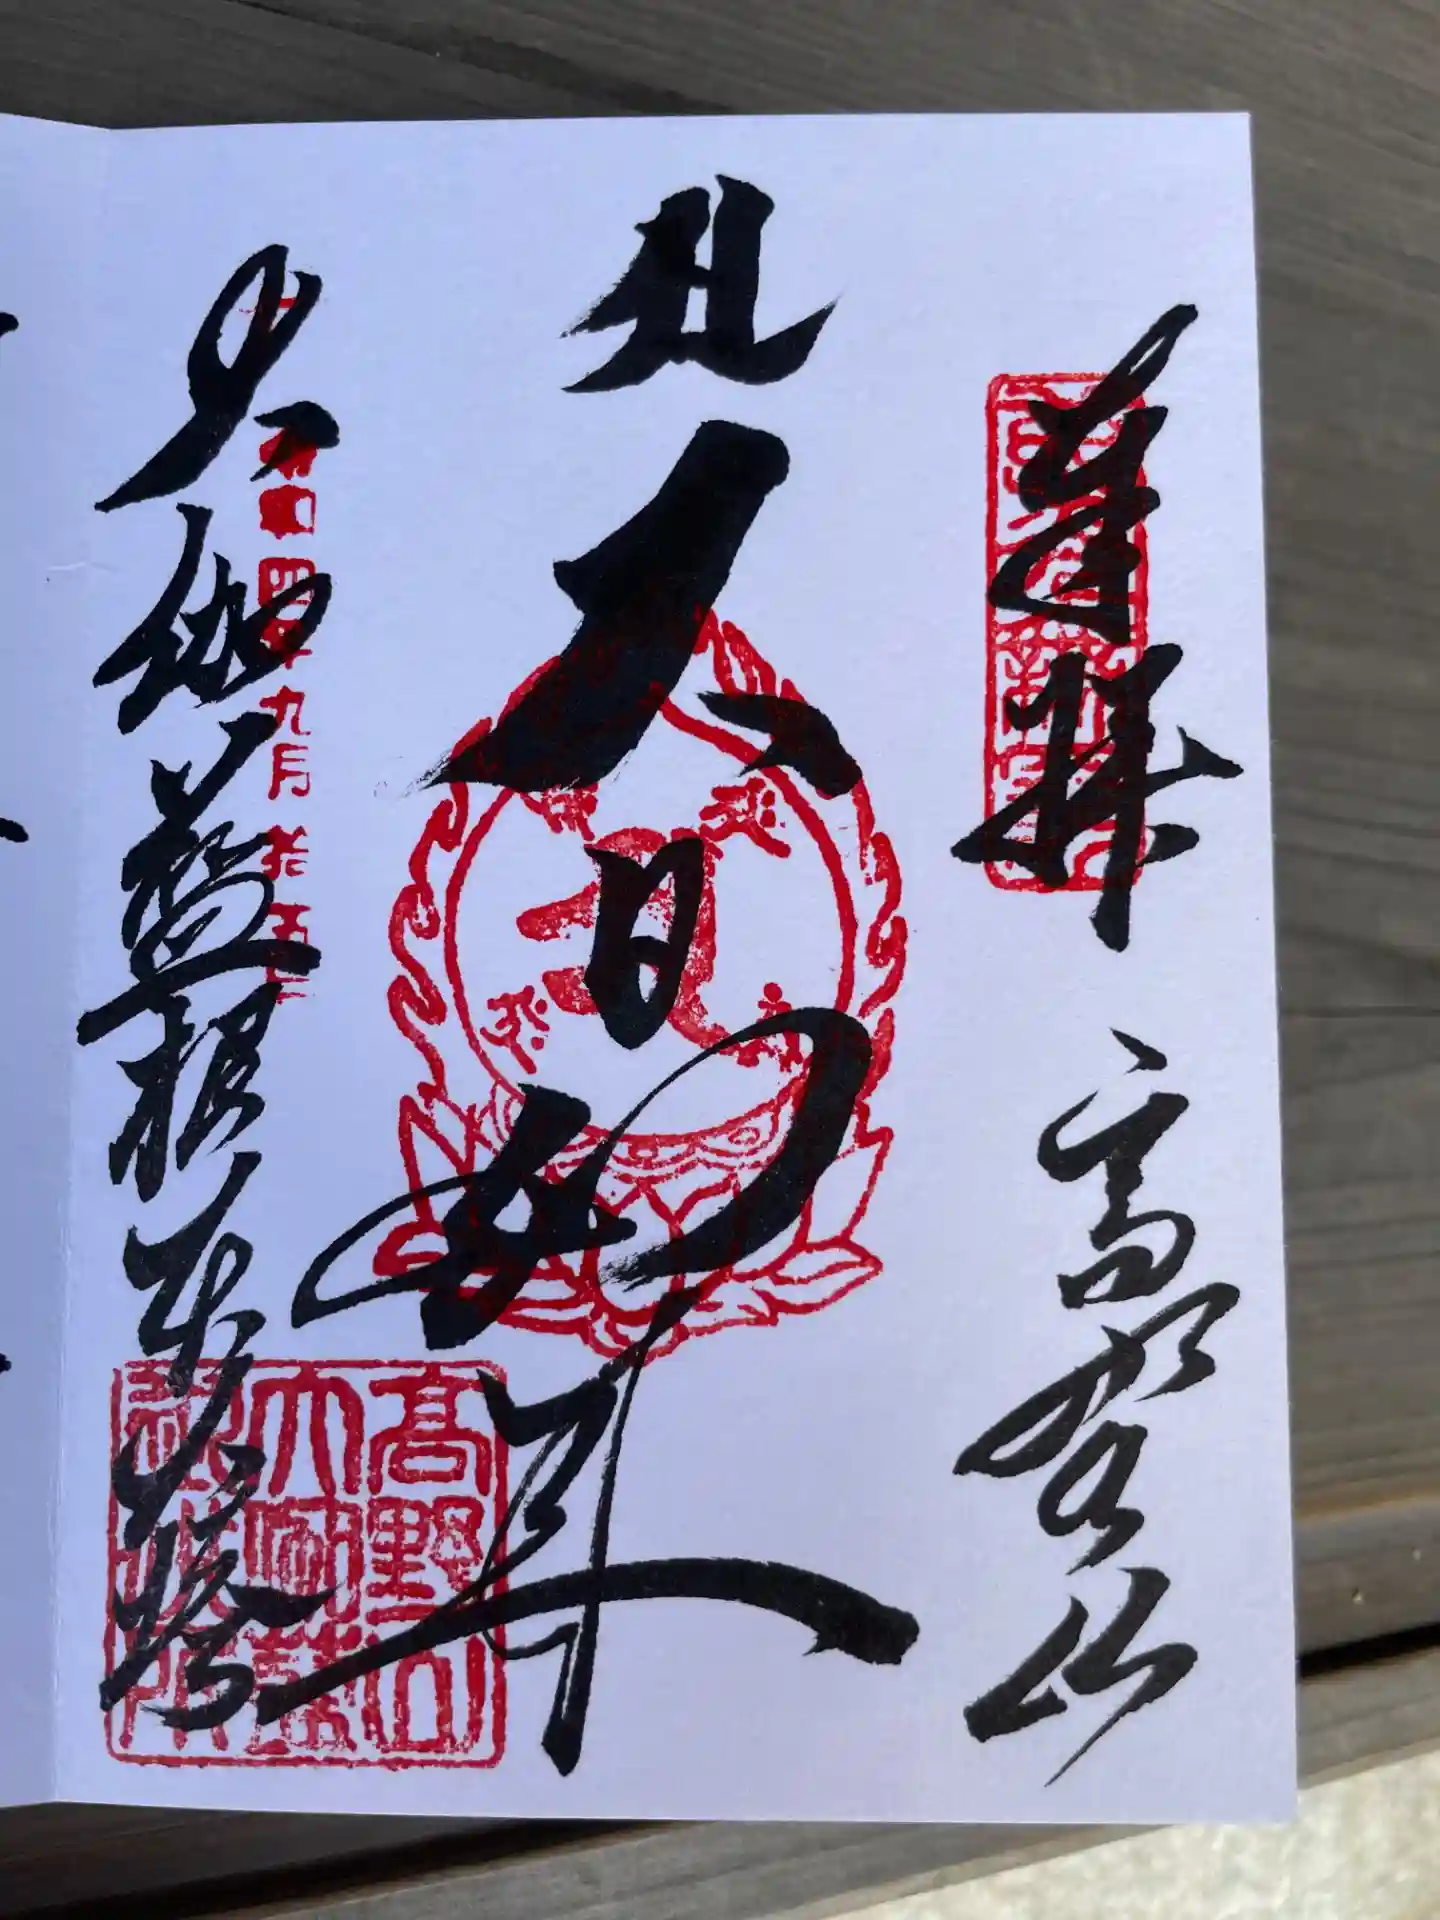 奉拝 高野山
大日如来
大伽藍根本大塔
令和四年九月拾五日
高野山
大伽藍